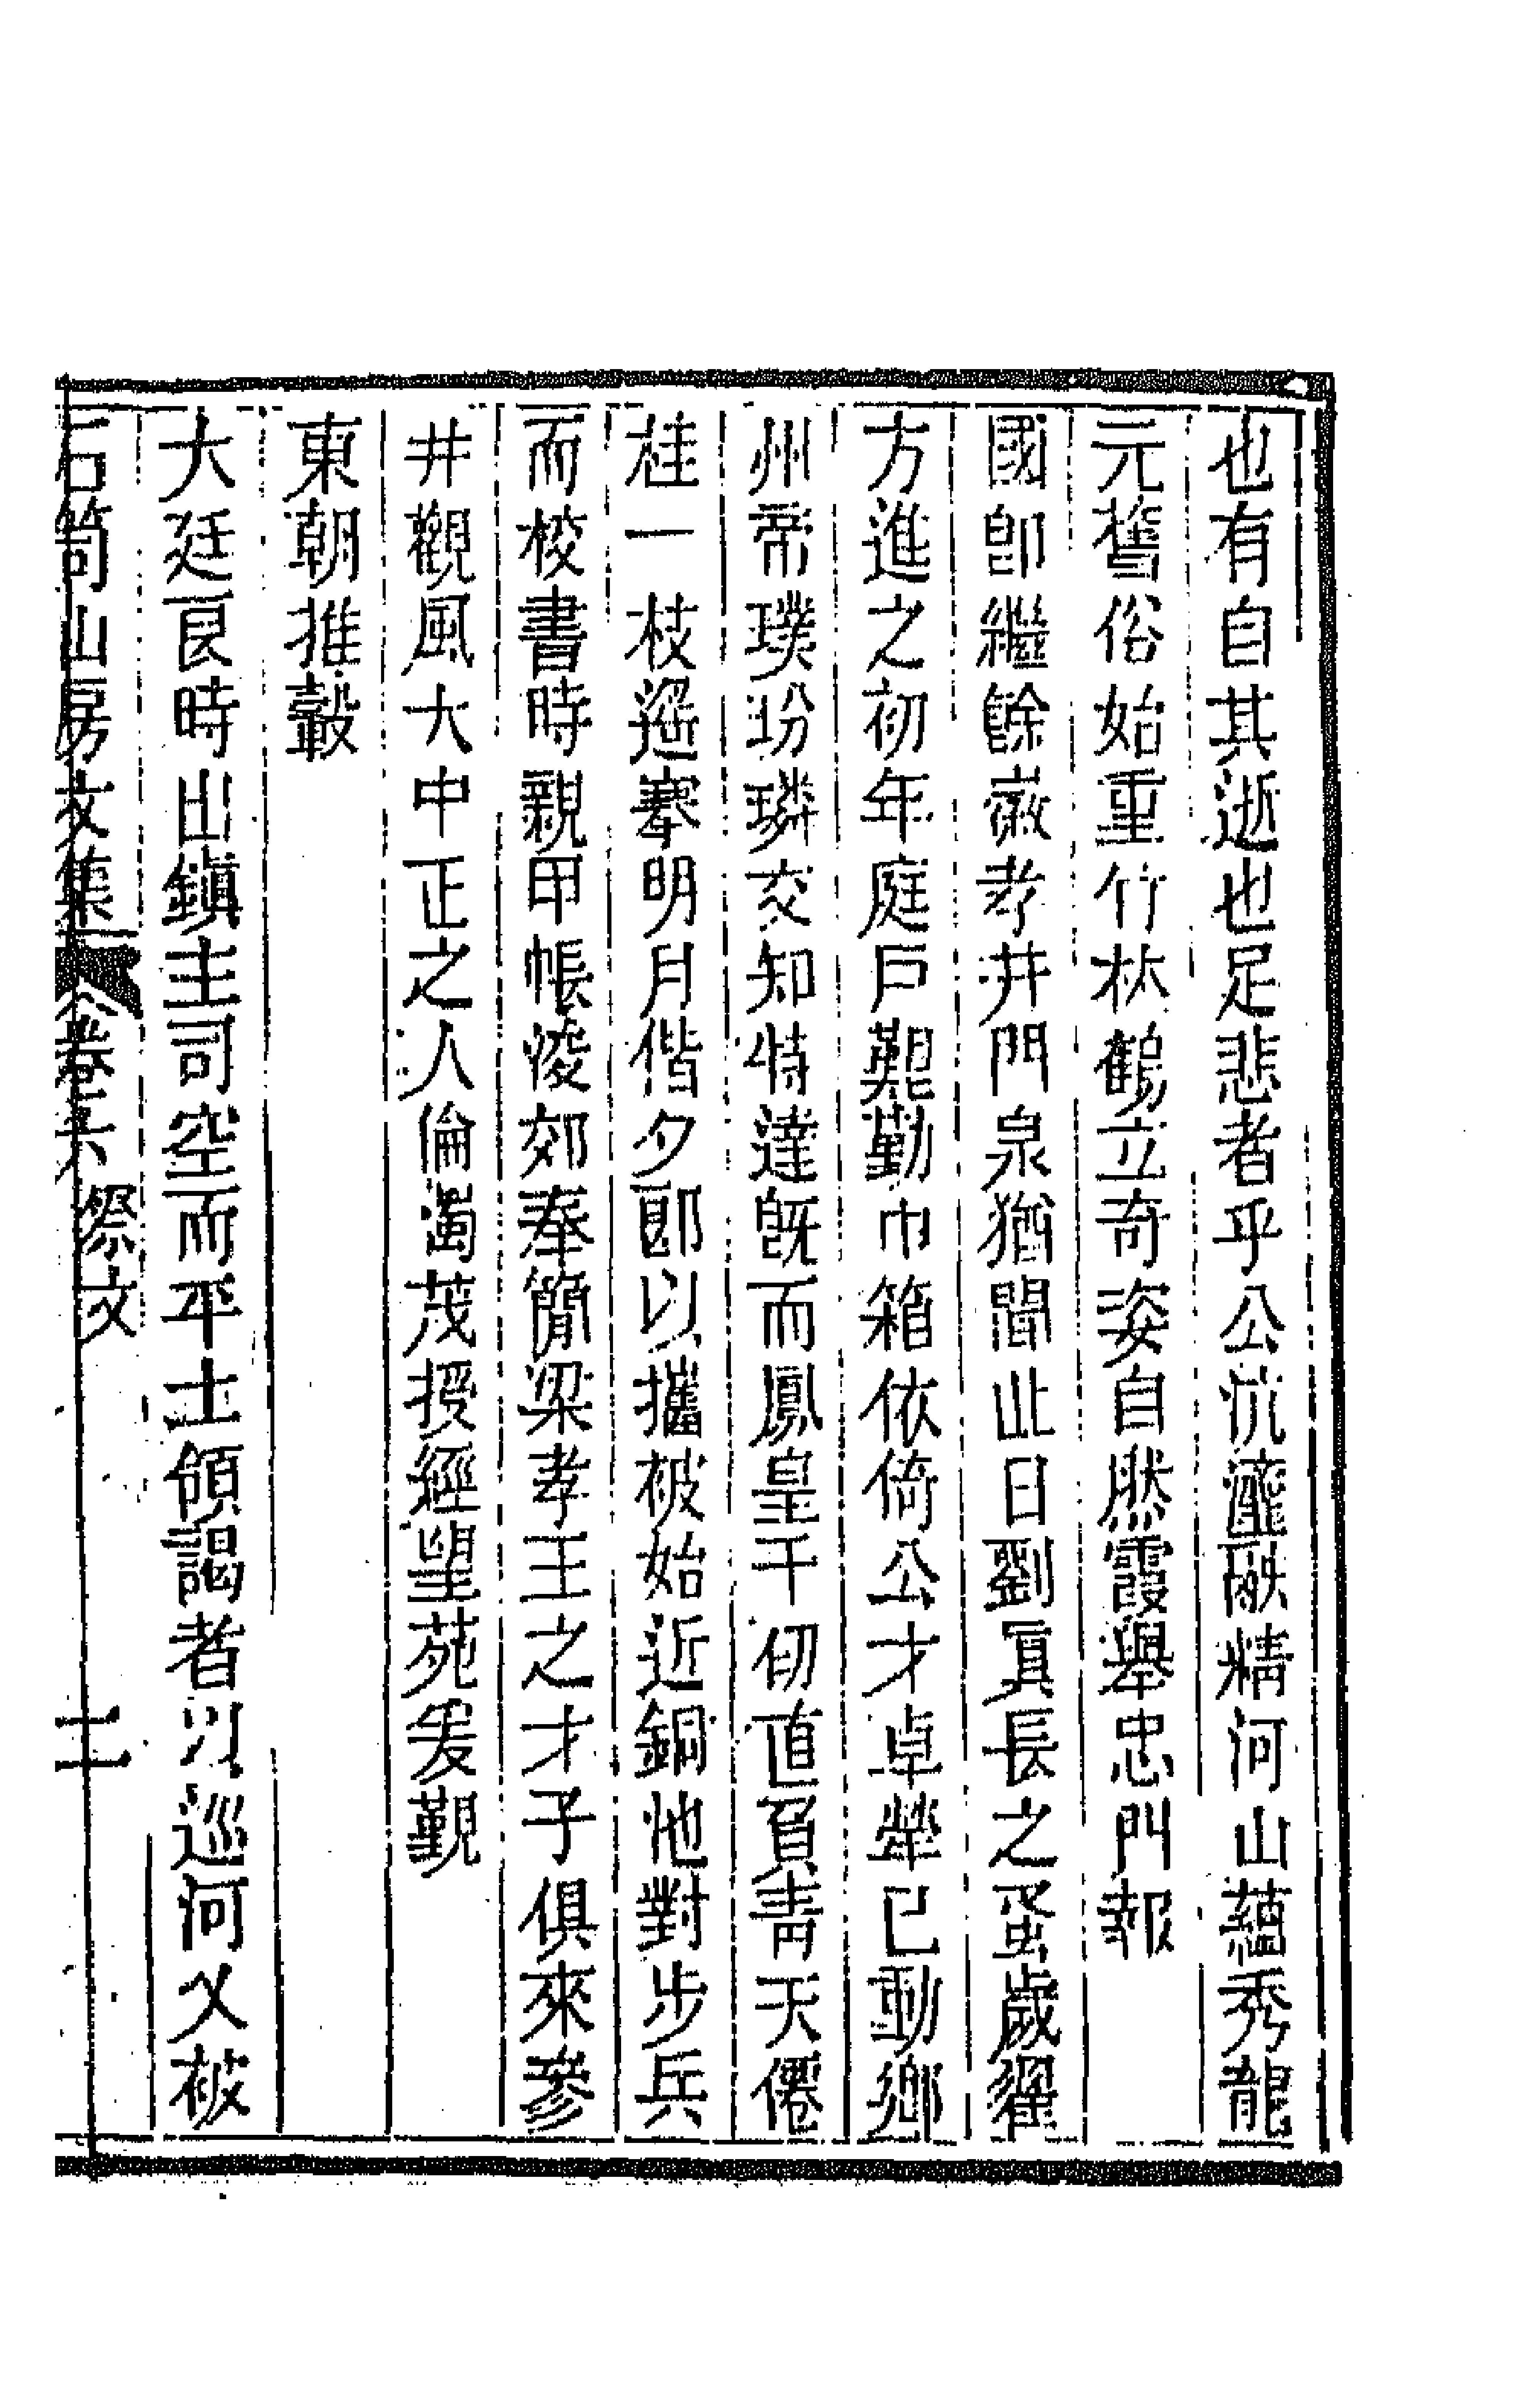 也有自其逝也足悲者乎公沆瀣融精河山蘊秀龍
元舊俗始重竹林鶴立奇姿自然霞舉忠門報
國卽繼餘徽孝井門泉猶聞此日劉眞長之蚤歲翟
方進之初年庭戶艱勤巾箱依倚公才卓犖已動鄉
州帝璞玢璘交知特達旣而鳳皇千仞直負青天僊
桂一枝遥搴明月偕夕郎以攜被始近銅池對步兵
而校書時親甲帳淩郊奉簡梁孝王之才子俱來參
井觀風大中正之人倫濁茂授經望苑爰覲
東朝推轂
大廷良時出鎭主司空而平土領謁者以巡河乂被
石笥山房文集 卷六 祭文 十二